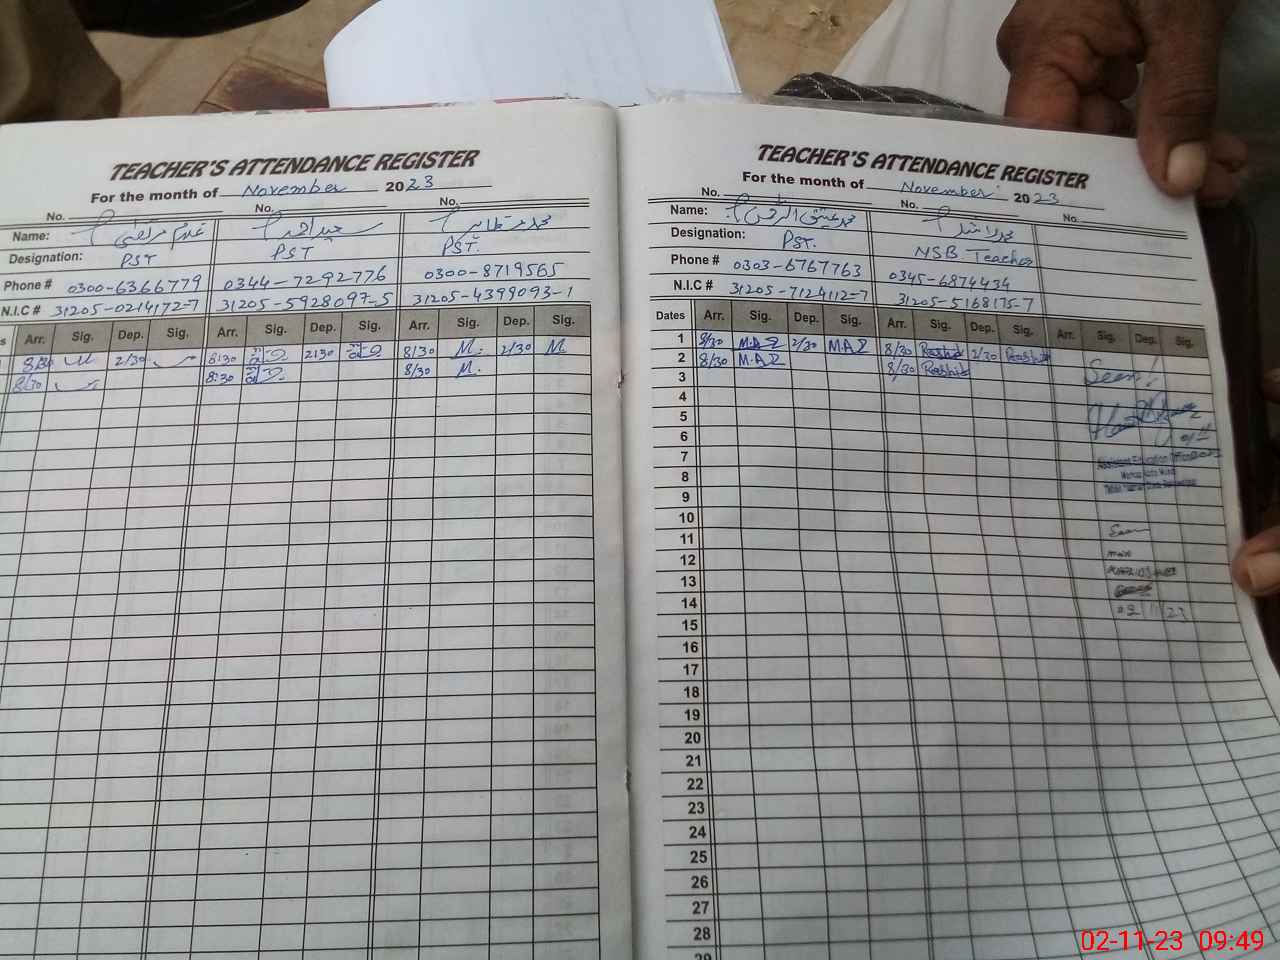 TEACHER'S ATTENDANCE REGISTER
For the month of November 2023
No. No. No.
Name: غلام مرتضی سعید احمد محمد طاہر
Designation: PST PST PST.
Phone # 0300-6366779 0344-7292776 0300-8719565
N.I.C # 31205-0214172-7 31205-5928097-5 31205-4399093-1
s Arr. Sig. Dep. Sig. Arr. Sig. Dep. Sig. Arr. Sig. Dep. Sig.
8/30 2/30 8:30 2:30 8/30 M. 2/30 M
8/30 8:30 8/30 M.
TEACHER'S ATTENDANCE REGISTER
For the month of November 2023
No. No. No.
Name: محمد عتیق الرحمن محمد راشد
Designation: PST. NSB. Teacher
Phone # 0303-6767763 0345-6874434
N.I.C # 31205-7124112-7 31205-5168175-7
Dates Arr. Sig. Dep. Sig. Arr. Sig. Dep. Sig. Arr. Sig. Dep. Sig.
1 8/30 M.A2 2/30 M.A2 8/30 Rashid 2/30 Rashid
2 8/30 M.A2 8/30 Rashid Seen!
3
4
5
6
7 Assistant Education Officer
8
9
10
11 Seen
12
13
14
15
16
17
18
19
20
21
22
23
24
25
26
27
28
29
02-11-23 09:49